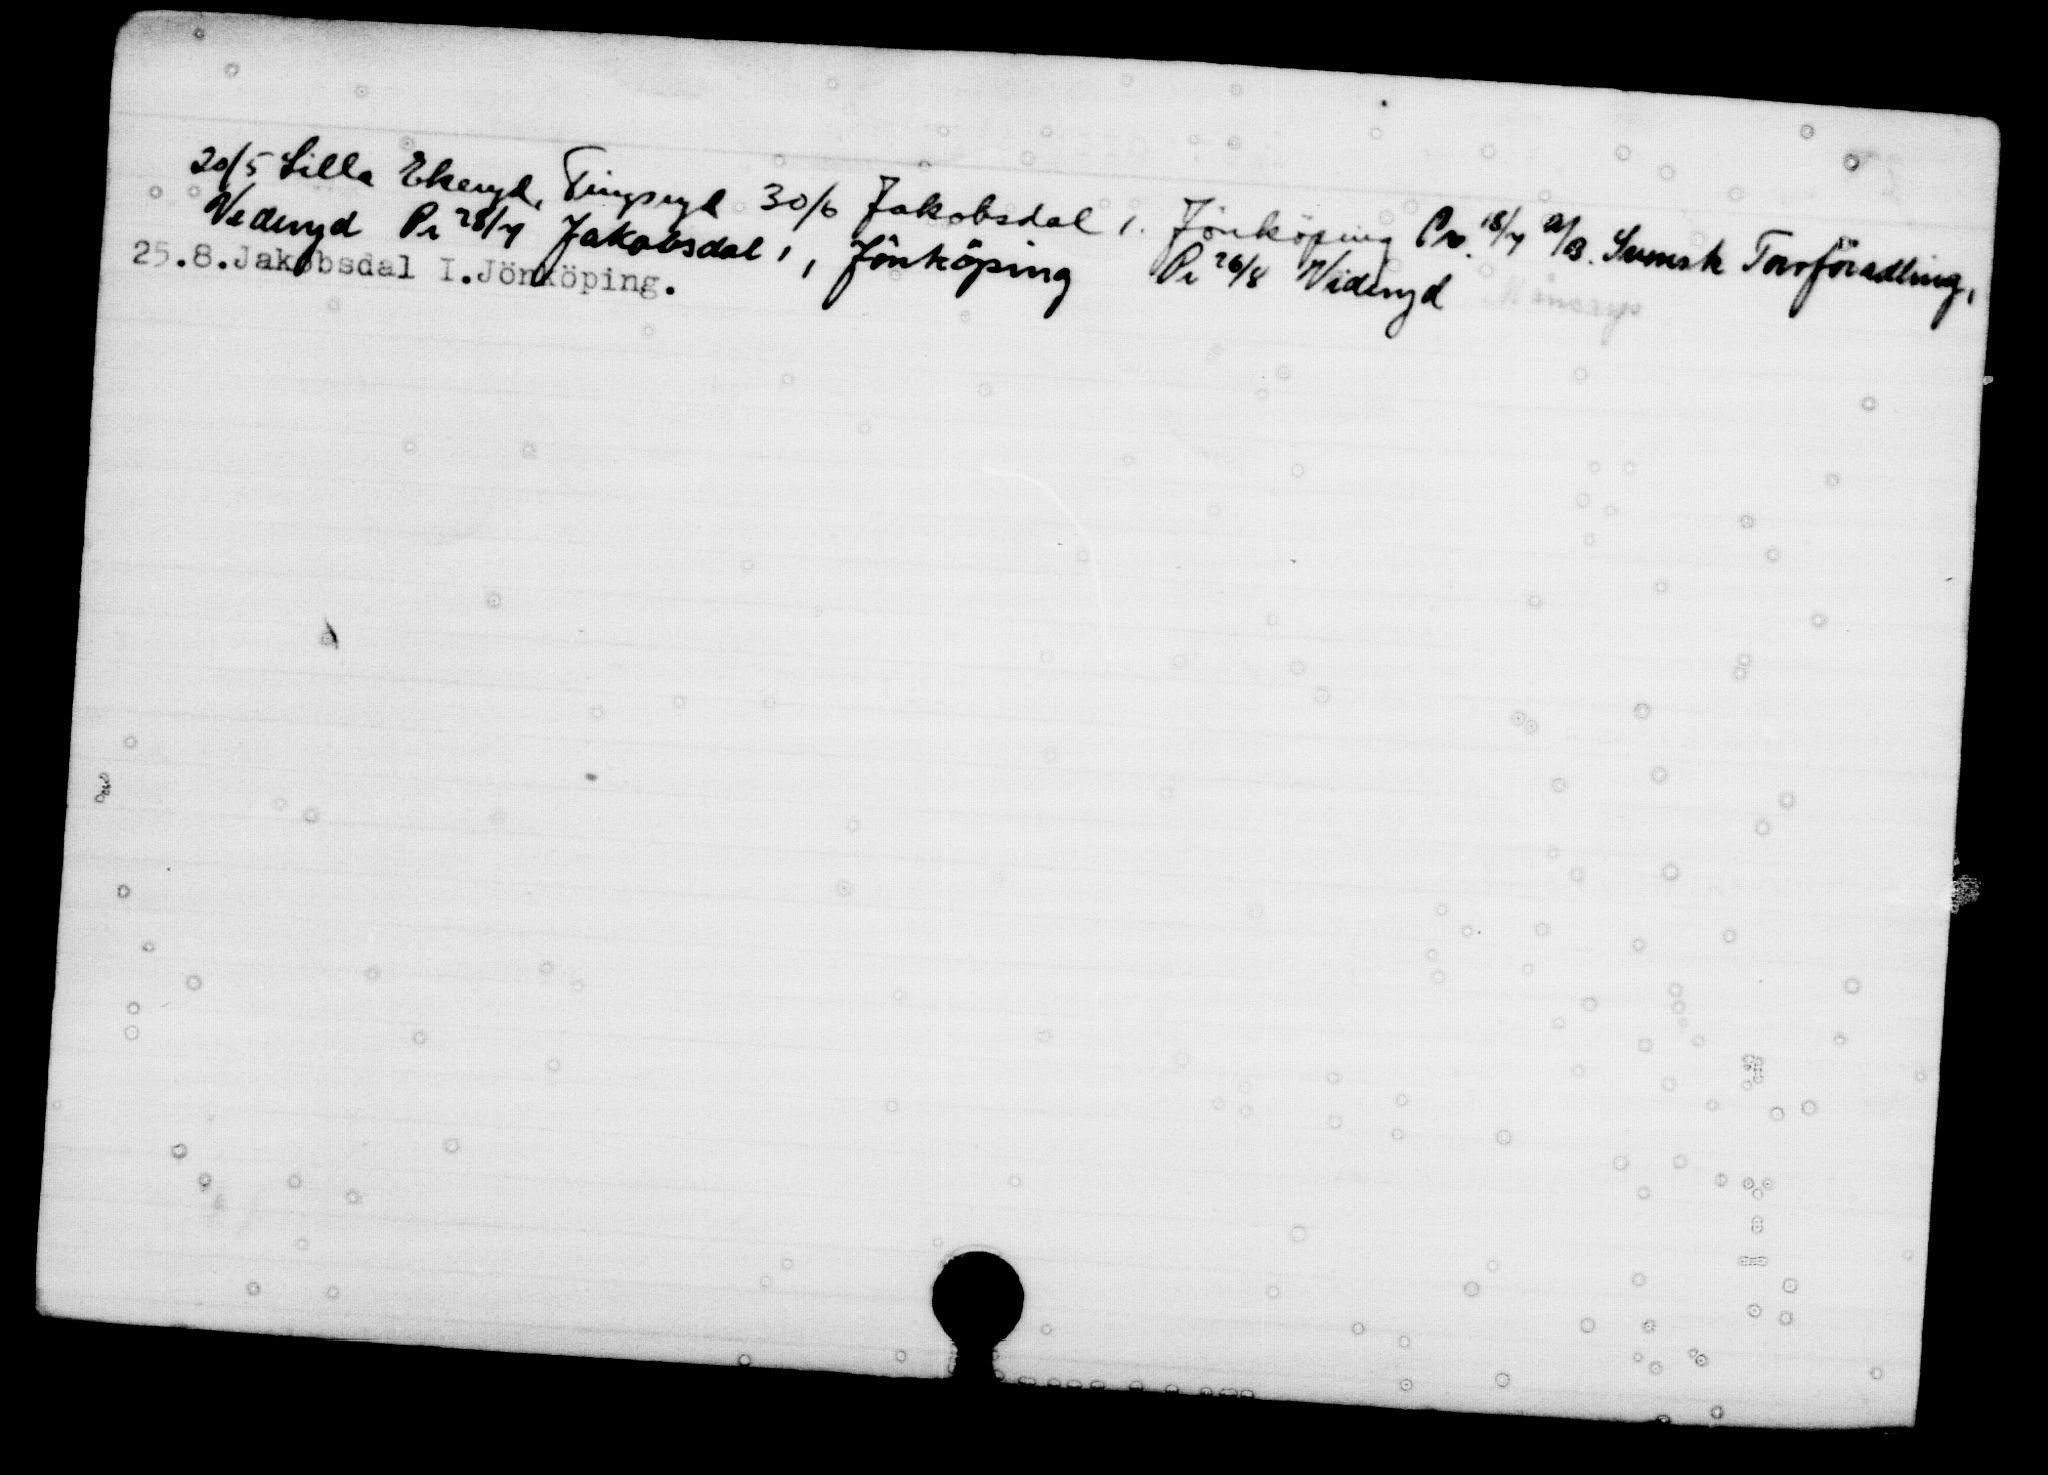 20/5 Lilla Ekeryd, Tingsryd 30/6 Jakobsdal 1. Jönköping Pr. 18/7 21/8. Svensk Torvförädling,
Vederyd Pr 28/7 Jakobsdal 1, Jönköping Pr 26/8 Videryd
25.8.Jakobsdal I.Jönköping.